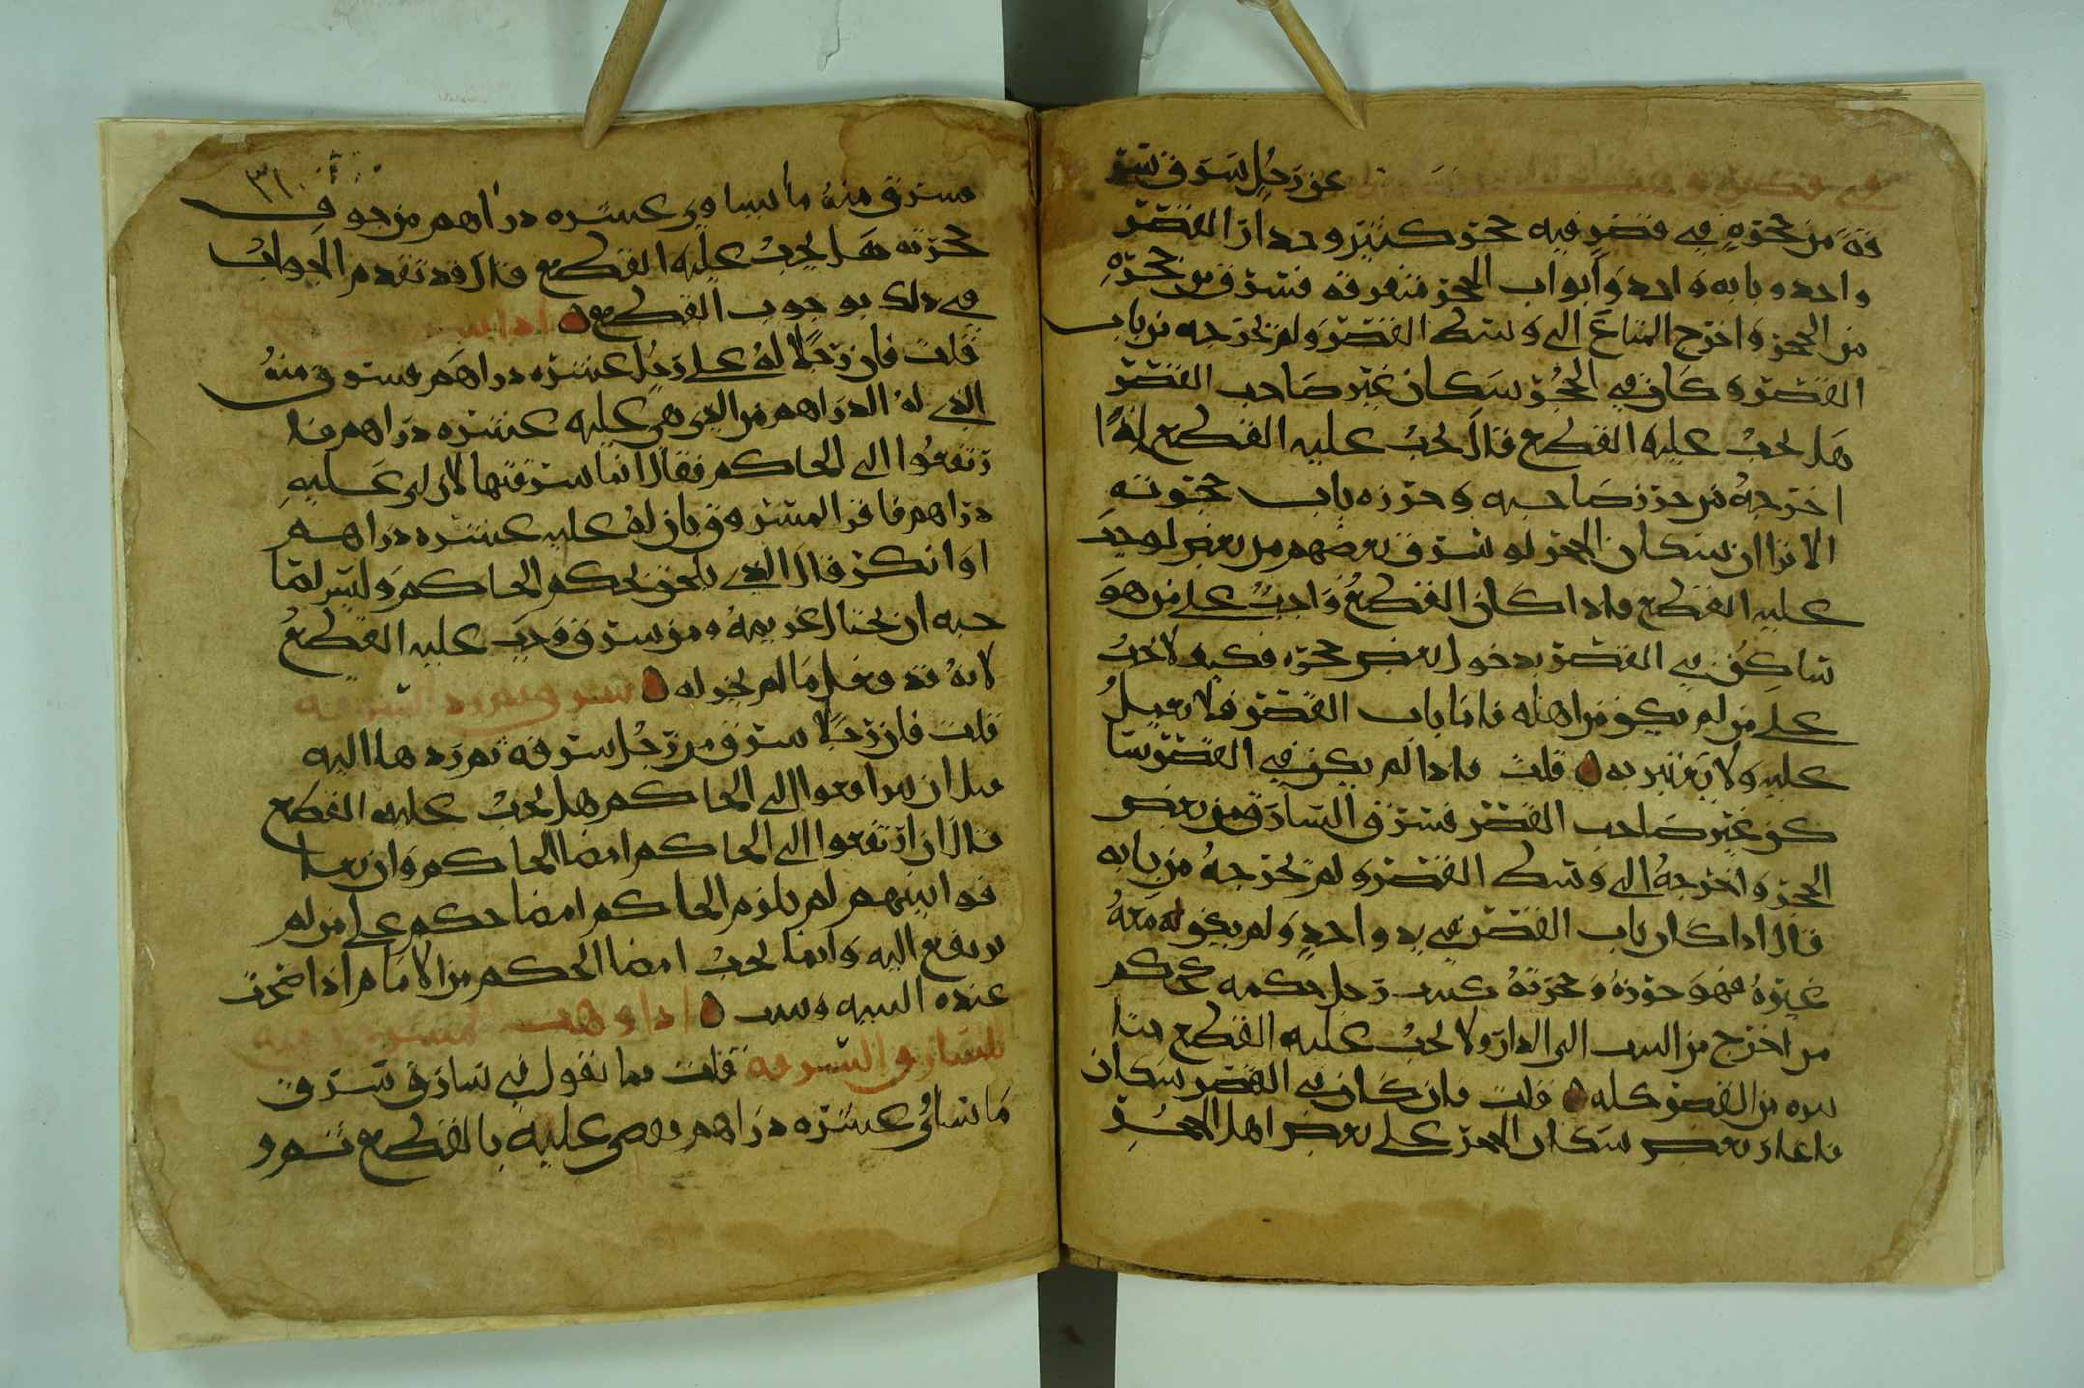 عن رجل سرق سر
قة من حجره في قصر فيه حجر كثير وجدار القصر
واحد وبابه واحد وابواب الحجر متفرقة فسرق من حجره
من الحجر واخرج المتاع الى وسط القصر ولم يخرجه من باب
القصر وكان في الحجر سكان غير صاحب القصر
هل يجب عليه القطع قال يجب عليه القطع اذا
اخرجه من حرز صاحبه وحرزه باب حجرته
الا ترا ان سكان الحجر لو سرق بعضهم من بعض لوجب
عليه القطع واذا كان القطع واجب على من هو
ساكن في القصر بدخول بعض حجره فكيف لا يجب
على من لم يكن من اهله فاما باب القصر فلا يعمل
عليه ولا يعتبر به قلت فاذا لم يكن في القصر سا
كن غير صاحب القصر فسرق السارق من بعض
الحجر واخرجه الى وسط القصر ولم يخرجه من بابه
قال اذا كان باب القصر في يد واحد ولم يكن له معه
غيره فهو حرزه وحجرته كبيت رجل حكمه كحكم
من اخرج من البيت الى الدار ولا يجب عليه القطع هنا
من القصر كله قلت فان كان في القصر سكان
فاغار بعض سكان الحجر على بعض اهل الحجر
فسرق منه ما يساوي عشره دراهم من جوف
حجرته هل يجب عليه القطع قال قد تقدم الجواب
في ذلك بوجوب القطع
قلت فان رجلا له على رجل عشره دراهم فسرق منه
الذي له الدراهم من الذي هي عليه عشره دراهم فا
رتفعوا الى الحاكم فقال انما سرقتها لان لي عليه
دراهم فاقر المسروق بان له عليه عشره دراهم
او انكر قال الذي يلحق بحكم الحاكم وليس لصا
حبه ان يختال غريمه ومن سرق وجب عليه القطع
لانه قد فعل ما لم يجز له سرق ثم رد السرقه
قلت فان رجلا سرق من رجل سرقه ثم ردها اليه
قبل ان يرافعوا الى الحاكم هل يجب عليه القطع
قال ان ارتفعوا الى الحاكم امضا الحاكم وان تعا
فوا بينهم لم يلزم الحاكم امضا حكم على من لم
يرتفع اليه وانما يجب امضا الحكم من الامام اذا صحت
عنده البينه وثبت اذا وهب المسروق منه
للسارق السرقه قلت فما تقول في سارق سرق
ما تساوي عشره دراهم وقضي عليه بالقطع ثم و